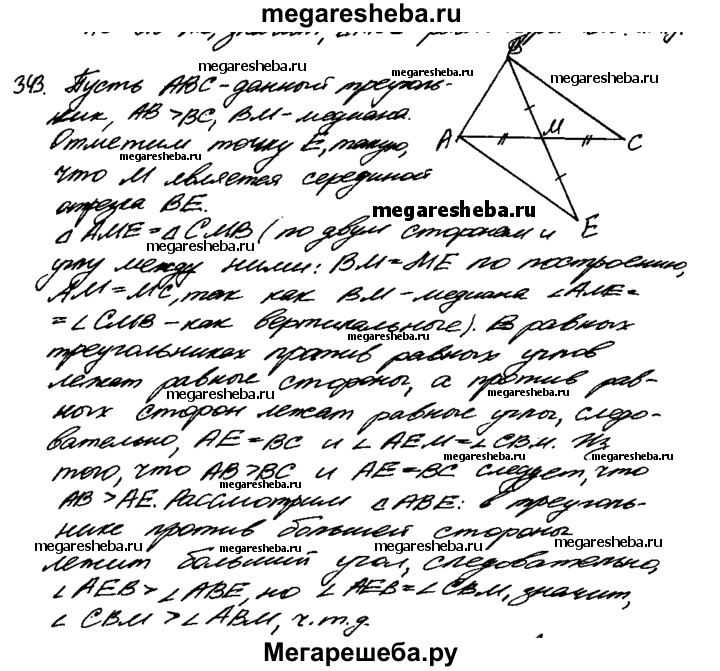 megaresheba.ru
343. Пусть ABC - данный треуголь-
megaresheba.ru
megaresheba.ru
megaresheba.ru
ник, AB > BC, BM - медиана.
Отметим точку E, такую,
megaresheba.ru
что M является серединой
отрезка BE.
B
A
M
C
E
megaresheba.ru
△ AME = △ CMB (по двум сторонам и
megaresheba.ru
углу между ними: BM = ME по построению,
megaresheba.ru
AM = MC, так как BM - медиана ∠AME =
megaresheba.ru
= ∠CMB - как вертикальные). В равных
megaresheba.ru
треугольниках против равных углов
лежат равные стороны, а против рав-
megaresheba.ru
megaresheba.ru
ных сторон лежат равные углы, следо-
вательно, AE = BC и ∠AEM = ∠CBM. Из
megaresheba.ru
megaresheba.ru
того, что AB > BC и AE = BC следует, что
megaresheba.ru
AB > AE. Рассмотрим △ABE: в треуголь-
нике против большей стороны
megaresheba.ru
megaresheba.ru
megaresheba.ru
megaresheba.ru
лежит больший угол, следовательно,
∠AEB > ∠ABE, но ∠AEB = ∠CBM, значит,
∠CBM > ∠ABM, ч.т.д.
Мегарешеба.ру